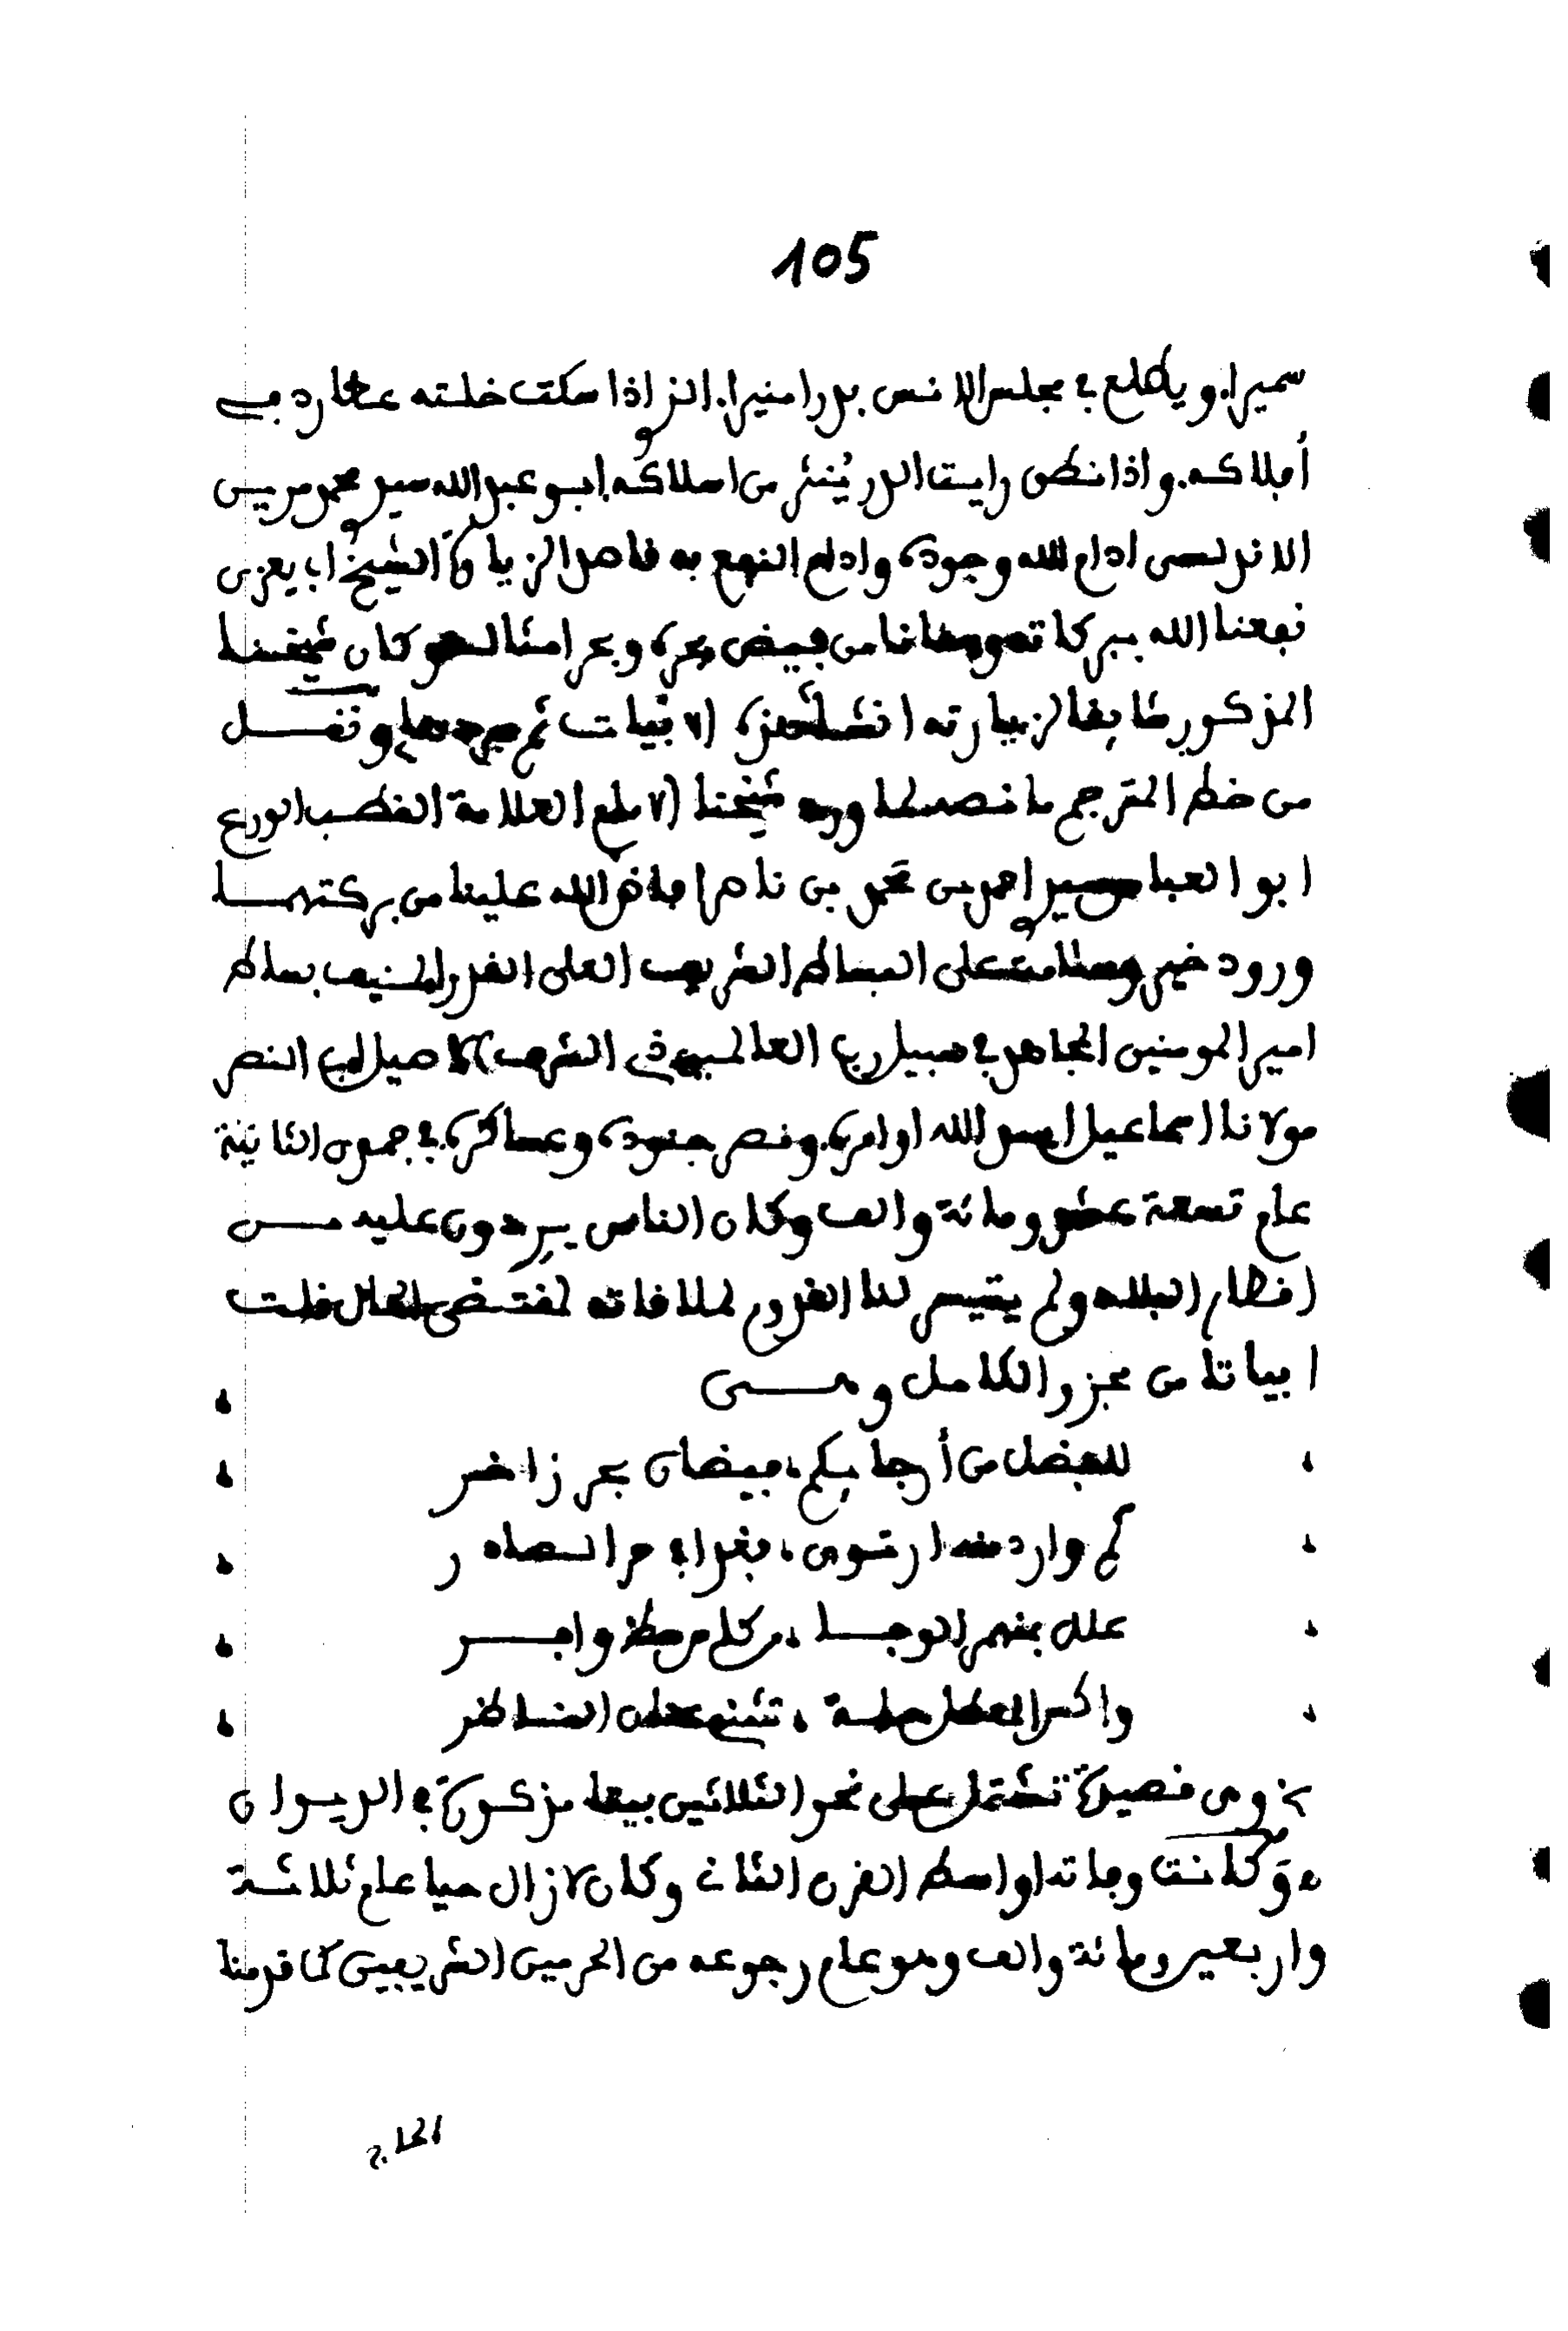 105
سميرا. ويطلع في مجلس الانس بدرا منيرا. الذي اذا سكت خلته عطارد في
أفلاكه. واذا نطق رايت الدر يُنثر من اسلاكه. ابو عبد الله سيدي محمد مريس
الاندلسي ادام الله وجوده وادام النفع به قاصدا لزيارة الشيخ ابي يعزى
نفعنا الله ببركاته وسقانا من فيض بحره وبحر امثاله وكان شيخنا
المذكور سابقا لزيارته انشد هذه الابيات ثم
من خط المترجم ما نصه لما ورد شيخنا الامام العلامة القطب الورع
ابو العباس سيدي احمد بن محمد بن ناصر افاض الله علينا من بركتهما
ورود خير وسلامة على البساط الشريف العلي القدر المنيف بساط
امير المومنين المجاهد في سبيل رب العالمين ذي الشرف الاصيل
مولانا اسماعيل الله اوامره. ونصر جنوده وعساكره. في جمدى الثانية
عام تسعة عشر ومائة والف وكان الناس يردون عليه من
اقطار البلاد ولم يتيسر لنا القدوم لملاقاته لمقتضى الحال قلت
ابياتا من مجزو الكامل وهي
للفضل من أرجايكم، فيضان بحر زاخر
كم وارد منه ارتوى، فغدا به حر الصادر
علله بنهر الوجا، من كل حظ وافر
واكس العطل حلة، تثني عنان الناظر
وهي قصيدة تشتمل على نحو الثلاثين بيتا مذكورة في الديوان
وكانت وفاته اواسط القرن الثاني وكان لازال حيا عام ثلاثة
واربعين ومائة والف وهو عام رجوعه من الحرمين الشريفين كما قدمنا
الحاج